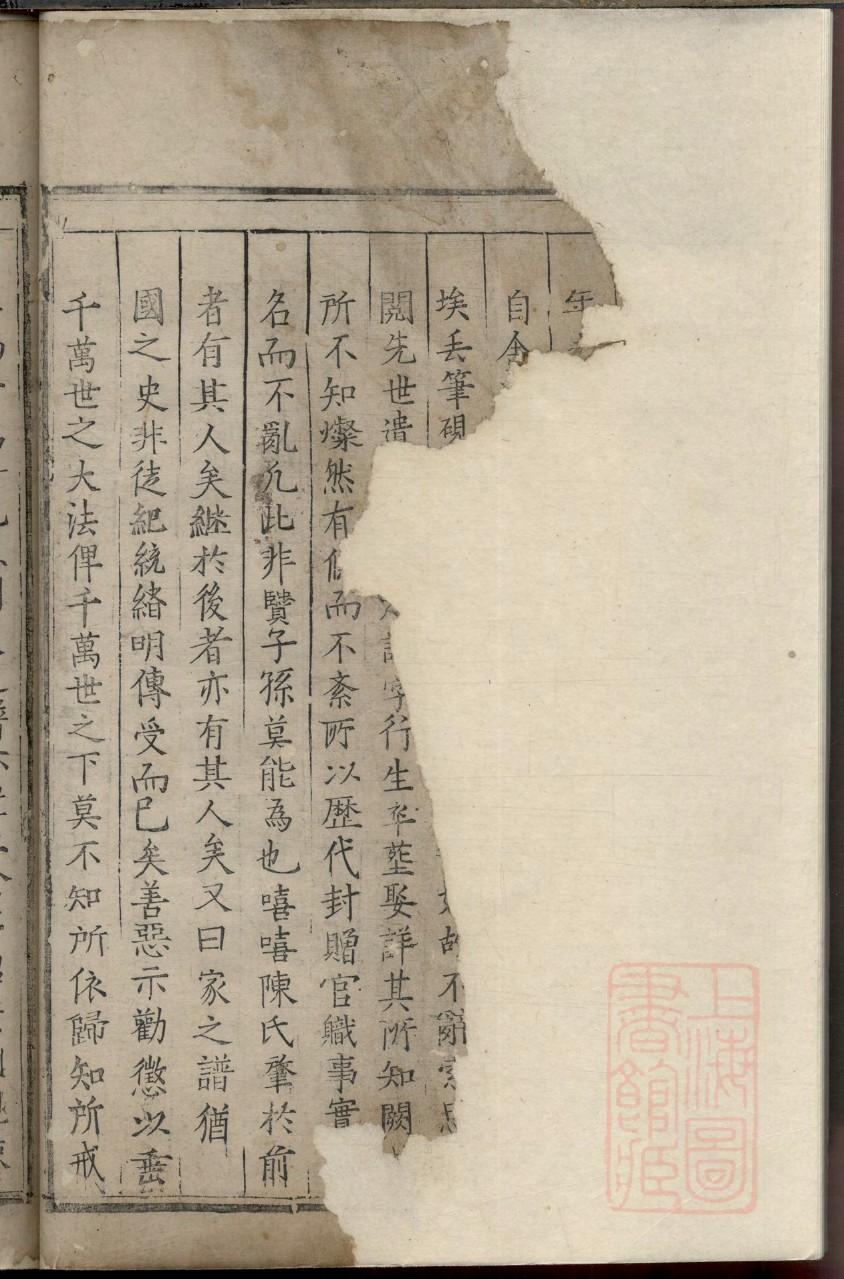 年
自
埃丢筆硯
故不
閱先世遺
字行生卒塟娶詳其所知闕
所不知燦然有倫而不紊所以歷代封贈官職事實
名而不亂凢此非賢子孫莫能為也嘻嘻陳氏肇於前
者有其人矣継於後者亦有其人矣又曰家之譜猶
國之史非徒紀統緒明傳受而已矣善惡示勸懲以垂
千萬世之大法俾千萬世之下莫不知所依歸知所戒
上海圖書館藏